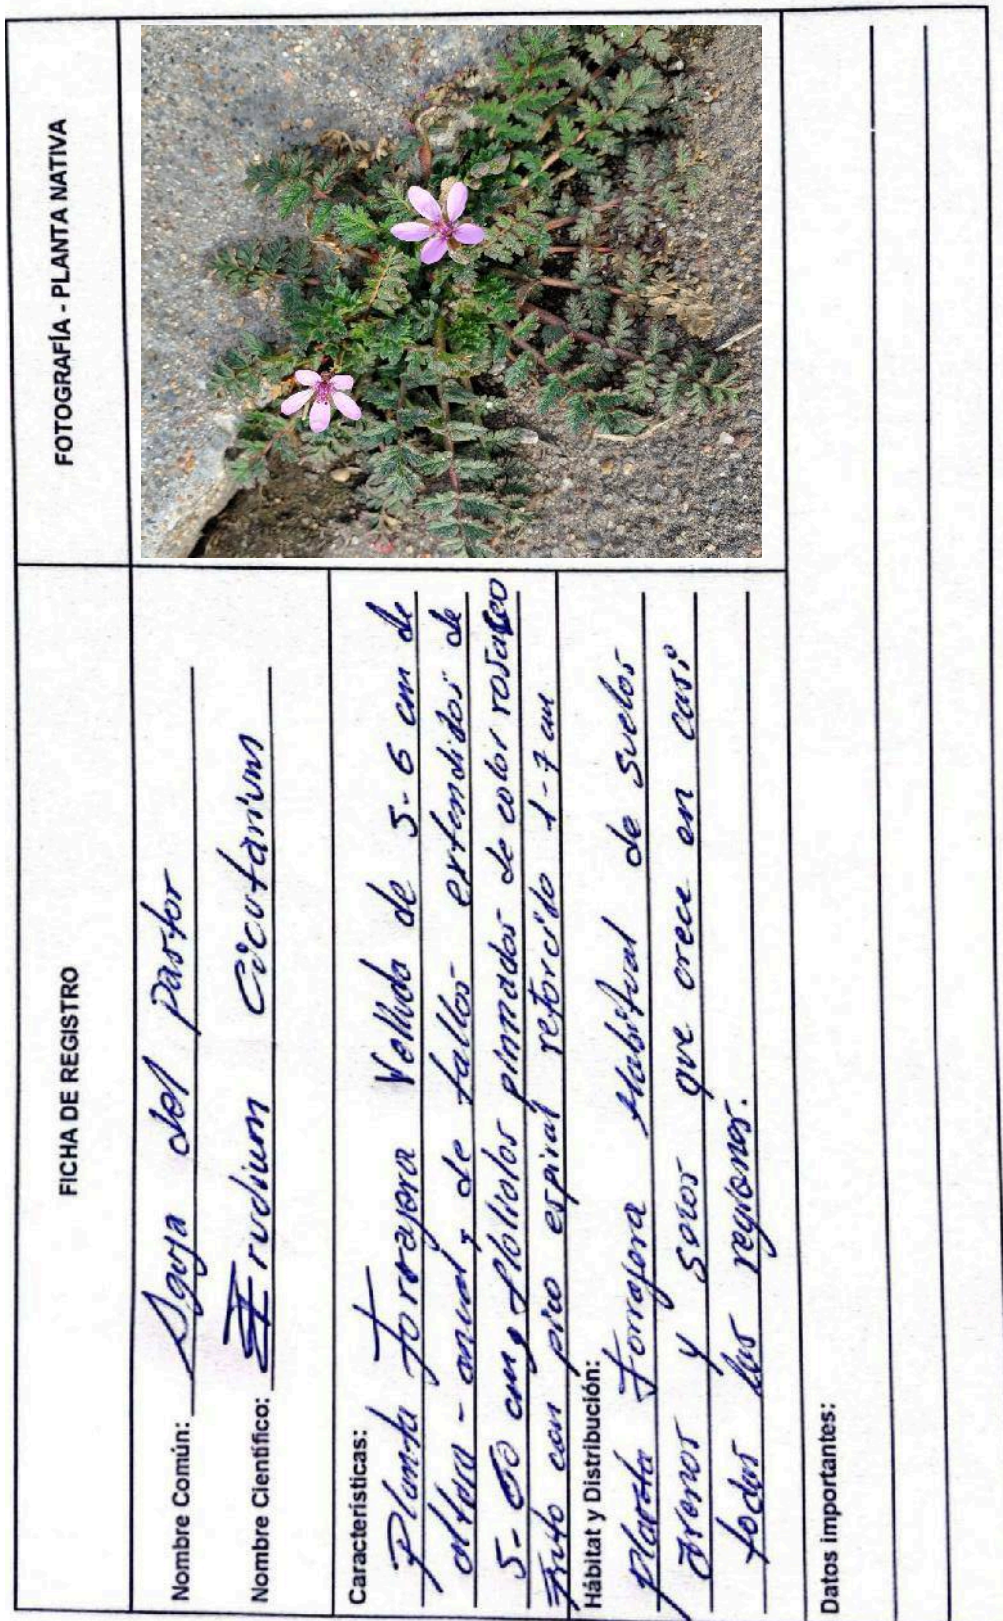 FICHA DE REGISTRO
FOTOGRAFÍA - PLANTA NATIVA
Nombre Común: Aguja del pastor
Nombre Científico: Erodium Cicutarium
Características:
Planta forrajera Velluda de 5-6 cm de
altura - anual, de tallos extendidos de
5-60 cm, floliolos pinnados de color rosaceo
Fruto con pico espiral retorcido 1-7 cm
Hábitat y Distribución:
planta forrajera Habitual de suelos
arenos y secos que crece en casi
todas las regiones.
Datos importantes: